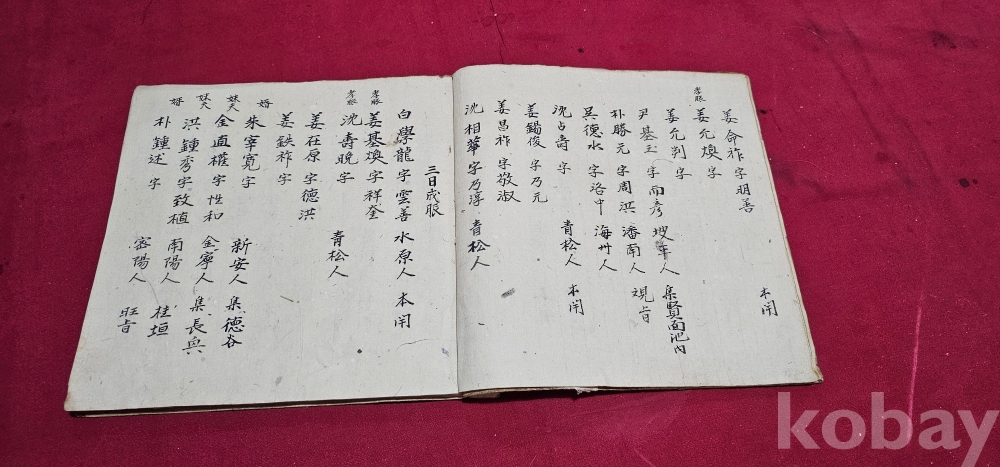 姜命祚 字明善 本閈
孝服 姜允煥 字
姜允判 字
尹基玉 字南彥 坡平人 集賢面池內
朴勝元 字周洪 潘南人 覌旨
吳德水 字洛中 海州人
沈占壽 字 青松人 本閈
姜錫俊 字乃元
姜昌祚 字敬淑
沈相華 字乃淳 青松人
三日成服
白學龍 字雲善 水原人 本閈
孝服 姜基煥 字祥奎
孝服 沈壽晚 字 青松人
姜在原 字德洪
姜鉄祚 字
婿 朱宰寬 字 新安人 集德谷
妹夫 金直權 字性和 金寧人 集長興
妹夫 洪鍾秀 字致植 南陽人 桂垣
婿 朴鍾述 字 密陽人 旺旨
kobay